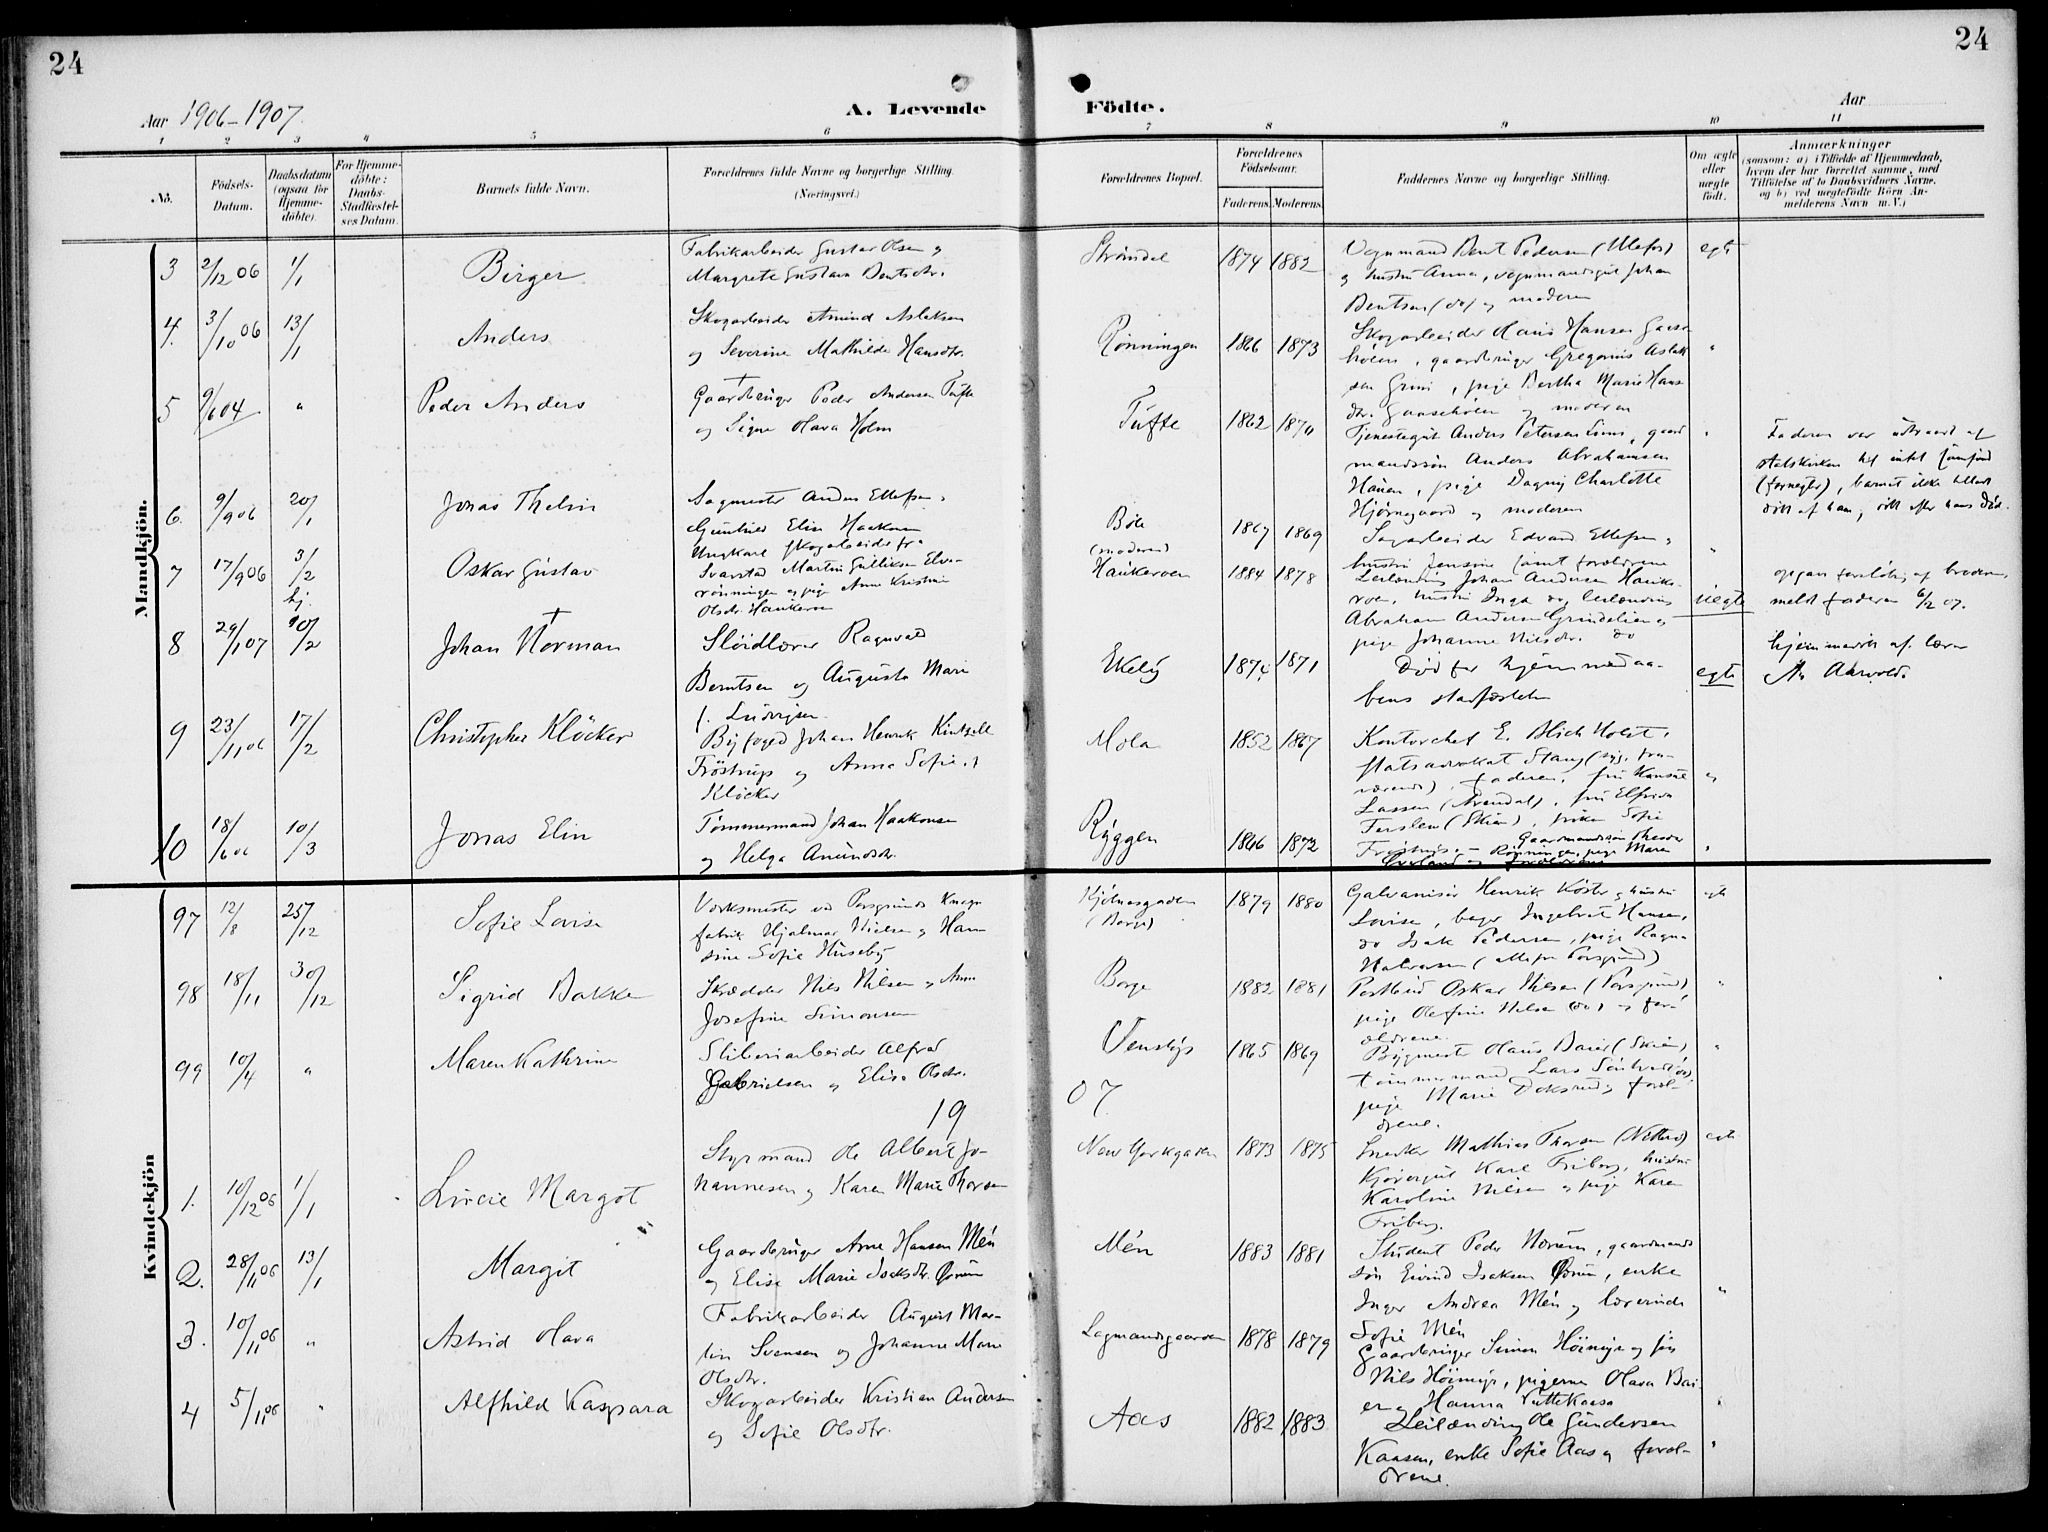 24
24
Aar 1906-1907.
A. Levende Födte.
Aar
1 2 3 4 5 6 7 8 9 10 11
No.
Födsels-Datum.
Daabsdatum (ogsaa for Hjemme-döbte).
For Hjemme-döbte: Daabs-Stadfæstel-ses Datum.
Barnets fulde Navn.
Forældrenes fulde Navne og borgerlige Stilling.
(Næringsvei.)
Forældrenes Bopæl.
Forældrenes Födselsaar.
Faderens. Moderens.
Faddernes Navne og borgerlige Stilling.
Om ægte eller uægte födt.
Anmærkninger
(saasom: a) i Tilfælde af Hjemmedaab, hvem der har forrettet samme, med Tilföielse af to Daabsvidners Navne, og b) ved uægtefödte Börn An-melderens Navn m. V.)
Mandkjön.
3 2/12 06 1/1 Birger
Fabrikarbeider Gustav Olsen og
Margrete Gustava Bentsdtr.
Strömdal 1874 1882
Vognmand Bent Pedersen (Ulefos)
og hustru Anna, vognmandsgut Johan
Bentsen (do) og moderen
egte
4. 3/10 06 13/1 Anders
Skogarbeider Amund Aslaksen
og Severine Mathilde Hansdtr.
Rönningen 1866 1873
Skogarbeider Hans Hansen Gaase
hölen, gaardbruger Gregorius Aslak
sen Grini, pige Bertha Marie Hans
dtr. Gaasehölen og moderen
"
5 9/6 04 " Peder Anders
Gaardbruger Peder Andersen Tufte
og Signe Olava Holm
Tufte 1862 1870
Tjenestegut Anders Petersen, gaard
mandssön Anders Abrahamsen
Hauen, pige Dagny Charlotte
Hjörnegaard og moderen
"
Faderen var udtraadt af
statskirken til intet samfund
(fornegter), barnet ikke tilladt
döbt af ham; döbt efter hans död.
6. 9/9 06 20/1 Jonas Thelin
Sagmester Anders Ellefsen og
Gunhild Elise Haakonsen
Böle 1867 1869
Sagarbeider Edvard Ellefsen og
hustru Jensine samt forældrene
"
7 17/9 06 3/2 Oskar Gustav
Ungkarl skogarbeider fra
Svarstad Martin Gulliksen Elve-
rönningen og pige Anne Kristine
Olsdtr. Haukeroen
(moderen)
Haukeroen 1884 1878
Leilænding Johan Andersen Hauke-
roen, hustru Inga do, leilænding
Abraham Andersen Grindelien og
pige Johanne Nilsdtr. do
uegte
opgav foreldrene
meldt faderen 6/2 07.
8 29/1 07 hj. 10/2 Johan Norman
Slöidlærer Ragnvald
Berntsen og Augusta Marie
f. Ludvigsen
Ekely 1874 1871
Död för hjemmedaa-
bens stadfæstelse
egte
hjemmedöbt af lærer
A. Aarvold.
9 23/11 06 17/2 Christopher Klöcker
Byfoged Johan Henrik Kintzell
Fröstrup og Anna Sofie f.
Klöcker
Mola 1852 1867
Kontorchef E. Blich Holst,
statsadvokat Stang (syg, fra-
værende), faderen, fru Konsul
Lassen (Arendal), fru Elfrida
Ferslew (Skien), fröken Sofie
Fröstrup.
"
10 18/6 06 10/3 Jonas Elin
Tömmermand Johan Haakonsen
og Helga Amundsdtr.
Ryggen 1866 1872
Gaardmandssön Theodor
Rönningen, pige Maren
"
Kvindekjön
97 12/8 25/12 Sofie Lovise
Verksmester ved Porsgrunds Knapp
fabrik Hjalmar Nielsen og Han
sine Sofie Huseby
Kjölnesgaden
(Borge) 1879 1880
Galvanisör Henrik Köster og hustru
Lovise, bager Ingebret Hansen,
do Isak Pedersen, pige Ragna
Halvorsen (alle fra Porsgrund)
egte
98 18/11 30/12 Sigrid Bakke
Skrædder Nils Nilsen og Anna
Josefine Simonsen
Borge 1882 1881
Postbud Oskar Nilsen (Porsgrund)
pige Olefine Nilsen (do) og for-
ældrene.
"
99 10/4 " Maren Kathrine
Sliberiarbeider Alfred
Gabrielsen og Elise Olsdtr.
Venstöp 1865 1869
Bygmester Olaus Baier (Skien)
tömmermand Lars
pige Marie og foræl-
drene.
"
19 07
1. 10/12 06 1/1 Lucie Margot
Styrmand Ole Albert Jo-
hannesen og Karen Marie Thorsen
New Yorkgaden 1873 1875
Snedker Mathias Thorsen (Netterö)
Kjöregut Karl Friberg, hustru
Karoline Nilsen og pige Karen
Friberg.
egte
2. 28/11 06 13/1 Margit
Gaardbruger Arne Hansen Mén
og Elise Marie Isaksdtr. Örum
Mén 1883 1881
Student Peder Nörum, gaardmands
sön Eivind Isaksen Örum, enke
Inger Andrea Mén og lærerinde
Sofie Mén
"
3. 10/11 06 " Astrid Olava
Fabrikarbeider August Mar-
tin Svensen og Johanne Marie
Olsdtr.
Lagmandsgaarden 1878 1879
Gaardbruger Simon Höimyr og sön
Nils Höimyr, pigerne Olava Bai-
er og Hanna Puttekaasa
"
4 5/11 06 " Alfhild Kaspara
Skogarbeider Kristian Andersen
og Sofie Olsdtr.
Aas 1882 1883
Leilænding Ole Gundersen
Kaasen, enke Sofie Aas og foræl-
drene
"